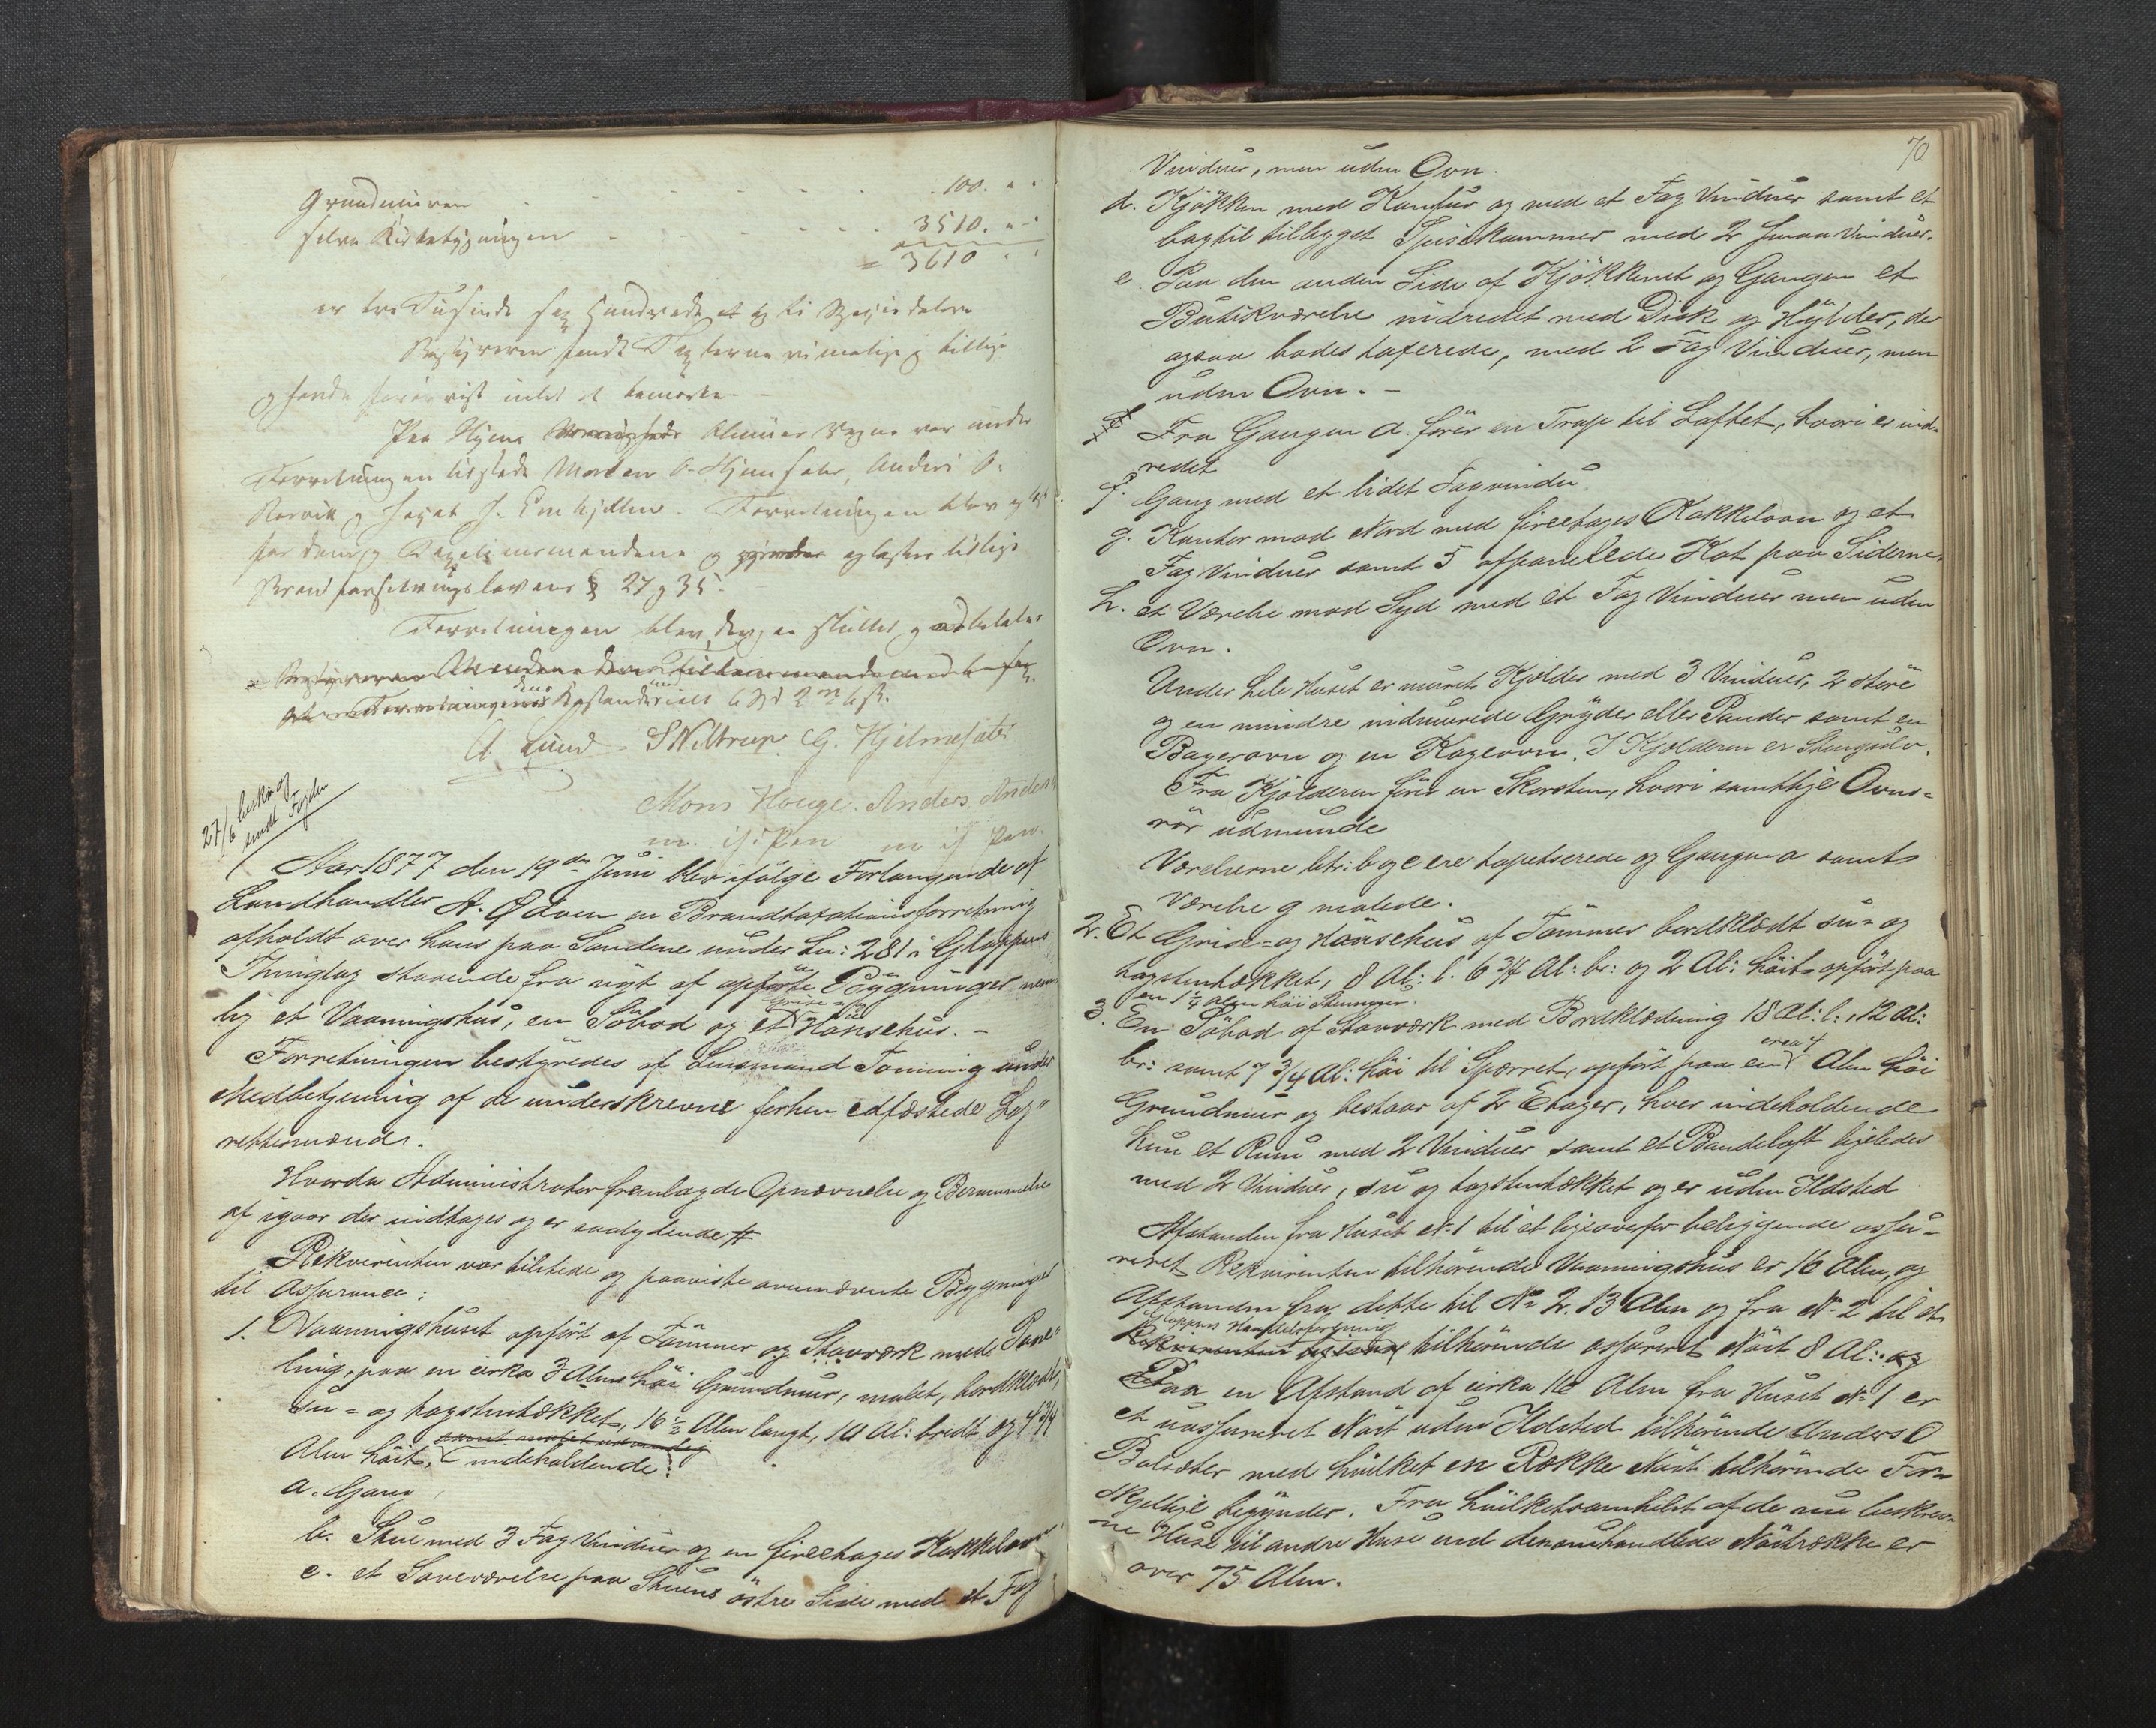 Grundmuren . . . . . . 100. " "
selve Kirkebygningen . . . . . . 3510. " "
= 3610 " "
er tre Tusinde sex Hundrede og ti Speciedaler
Bestyreren fandt Taxterne rimelige
og fandt forøvrigt intet at bemærke
Paa Hyens Almues Vegne var under
Forretningen tilstede Morten O. Hjemsæter, Anders O.
Rørvik og J. Emhjellen. Forretningen blev
for dem og Repræsentanterne oplæst tillige
Brandforsikringslovens § 27 og 35.
Forretningen blev derpaa sluttet
A. Lund S Niltrup G. Hjelmesæter
Mons Houge. Anders Anders
m. i. P m i P
27/6 beskr og
sendt Fogden
Aar 1877 den 19de Juni blev ifølge Forlangende af
Landhandler A. Ødven en Brandtaxationsforretning
afholdt over hans paa Sandene under Ln: 281 i Gloppens
Thinglag staaende fra nyt af opførte Bygninger nem
lig et Vaaningshus, en Söbod og et Grise og Hönsehus. -
Forretningen bestyredes af Lensmand Tonning under
Medbetjening af de underskrevne forhen edfæstede Lag"
rettesmænd.
Hvorda Administrator fremlagde Opnævnelse og Berammelse
af igaar der indtages og er saalydende #
Rekvirenten var tilstede og paaviste ovennævnte Bygninger
til Assurance:
1. Vaaningshuset opfört af Tömmer og Stavværk med Pane=
ling, paa en cirka 3 Alen höi Grundmur, malet, bordklædt,
su= og tagstentækket, 16 1/2 Alen langt, 10 Al: bredt og 4 3/4
samt malet udvendig
Alen höit, indeholdende:
a. Gang,
b. Stue med 3 Fag Vinduer og en fireetages Kakkelovn
c. et Soveværelse paa Stuens östre Side med et Fag
70
Vinduer, men uden Ovn.
d. Kjökken med Komfur og med et Fag Vinduer samt et
bagtil tilbygget Spisekammer med 2 smaa Vinduer.
e. Paa den anden Side af Kjökkenet og Gangen et
Butikværelse indredet med Disk og Hylder, der
ogsaa bades taxerede, med 2 Fag Vinduer, men
uden Ovn. -
Fra Gangen a. förer en Trap til Loftet, hvori er ind=
redet
f. Gang med et lidet Fagvindu
g. Kontor mod Nord med fireetages Kakkelovn og et
Fag Vinduer samt 5 afpanelede Kot paa Siderne.
h. et Værelse mod Syd med et Fag Vinduer men uden
Ovn.
Under hele Huset er muret Kjelder med 3 Vinduer, 2 störe
og en mindre indmurede Gryder eller Pander samt en
Bagerovn og en Kogeovn. I Kjelderen er Stengulv.
Fra Kjelderen förer en Skorsten, hvori samtlige Ovns=
rör udmunde
Værelserne litr: b og c ere tapetserede og Gangen a samt
Værelse g malede.
2. Et Grise= og Hönsehus af Tömmer bordklædt su= og
tagstentækket, 8 Al: l. 6 3/4 Al: br: og 2 Al: höit opfört paa
en 1 1/4 Alen höi Stenmur.
3. En Söbod af Stavværk med Bordklædning 18 Al: l:, 12 Al:
br: samt 7 3/4 Al: höi til Sperret, opfört paa en circa 4 Alen höi
Grundmur og bestaar af 2 Etager, hver indeholdende
kun et Rum med 2 Vinduer samt et Bandeloft ligeledes
med 2 Vinduer, su og tagstentækket og er uden Ildsted
Afstanden fra Huset No 1 til et ligeoverfor beliggende assu=
reret Rekvirenten tilhörende Vaaningshus er 16 Alen, og
Afstanden fra dette til No 2. 13 Alen og fra No 2 til et
Gloppens Handelsforening
Rekvirenten tilhörende assureret Nöst 8 Al: og
Paa en Afstand af cirka 16 Alen fra Huset No 1 er
et uassureret Nöst uden Ildsted tilhörende Anders O
Balsæter med hvilket en Række Nöst tilhörende For=
skjellige begynder. Fra hvilketsomhelst af de nu beskrev=
ne Huse til andre Huse end den omhandlede Nöstrække er
over 75 Alen.